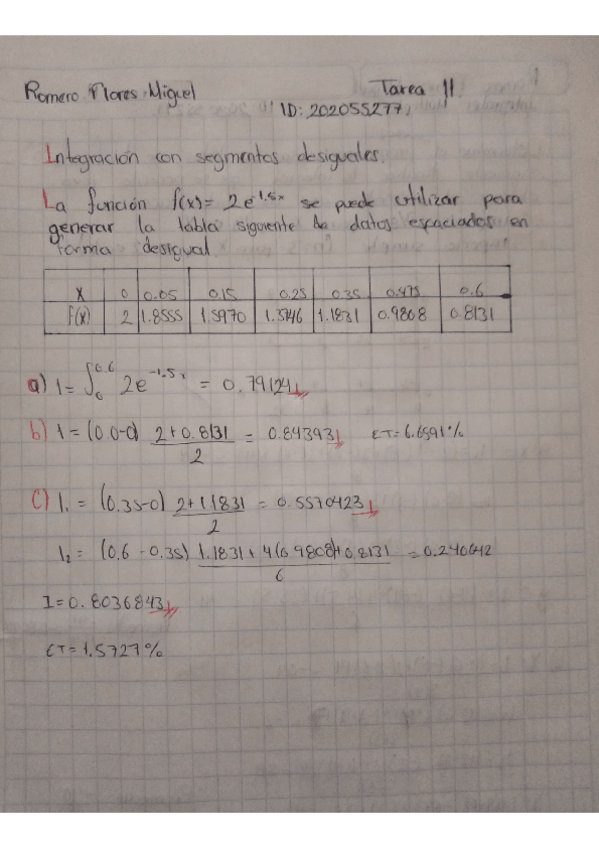 Romero Flores Miguel Tarea 11
ID: 202055277
Integracion con segmentos desiguales.
La función f(x)= 2e^1.5x se puede utilizar para
generar la tabla siguiente de datos espaciados en
forma desigual
X 0 0.05 0.15 0.25 0.35 0.475 0.6
f(x) 2 1.8555 1.5970 1.3746 1.1831 0.9808 0.8131
a) I= ∫₀^0.6 2e^-1.5x = 0.79124
b) I = (0.0-0) 2+0.8131 / 2 = 0.84393 ET=6.6591%
c) I₁ = (0.35-0) 2+1.1831 / 2 = 0.5570423
I₂ = (0.6-0.35) 1.1831+4(0.9808)+0.8131 / 6 = 0.246642
I=0.8036843
ET=1.5727%